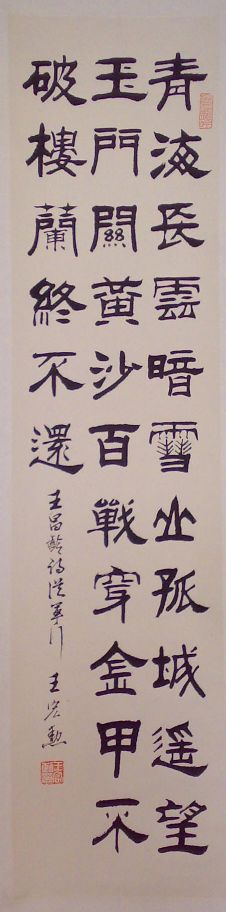 青海長雲暗雪山孤城遙望
玉門關黃沙百戰穿金甲不
破樓蘭終不還
王昌齡詩從軍行 王宏勳